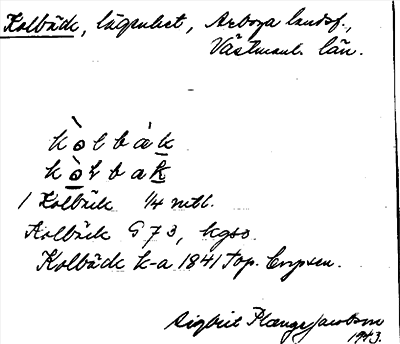 Kolbäck, lägenhet, Arboga landsf.,
Västmanl. län.
kòlbàk
kòlbak
1 Kolbäck 1/4 mtl.
Kolbäck G 73, kgso.
Kolbäck k-a 1841 Top. Corpsen.
Sigbrit Plænge Jacobson
1943.